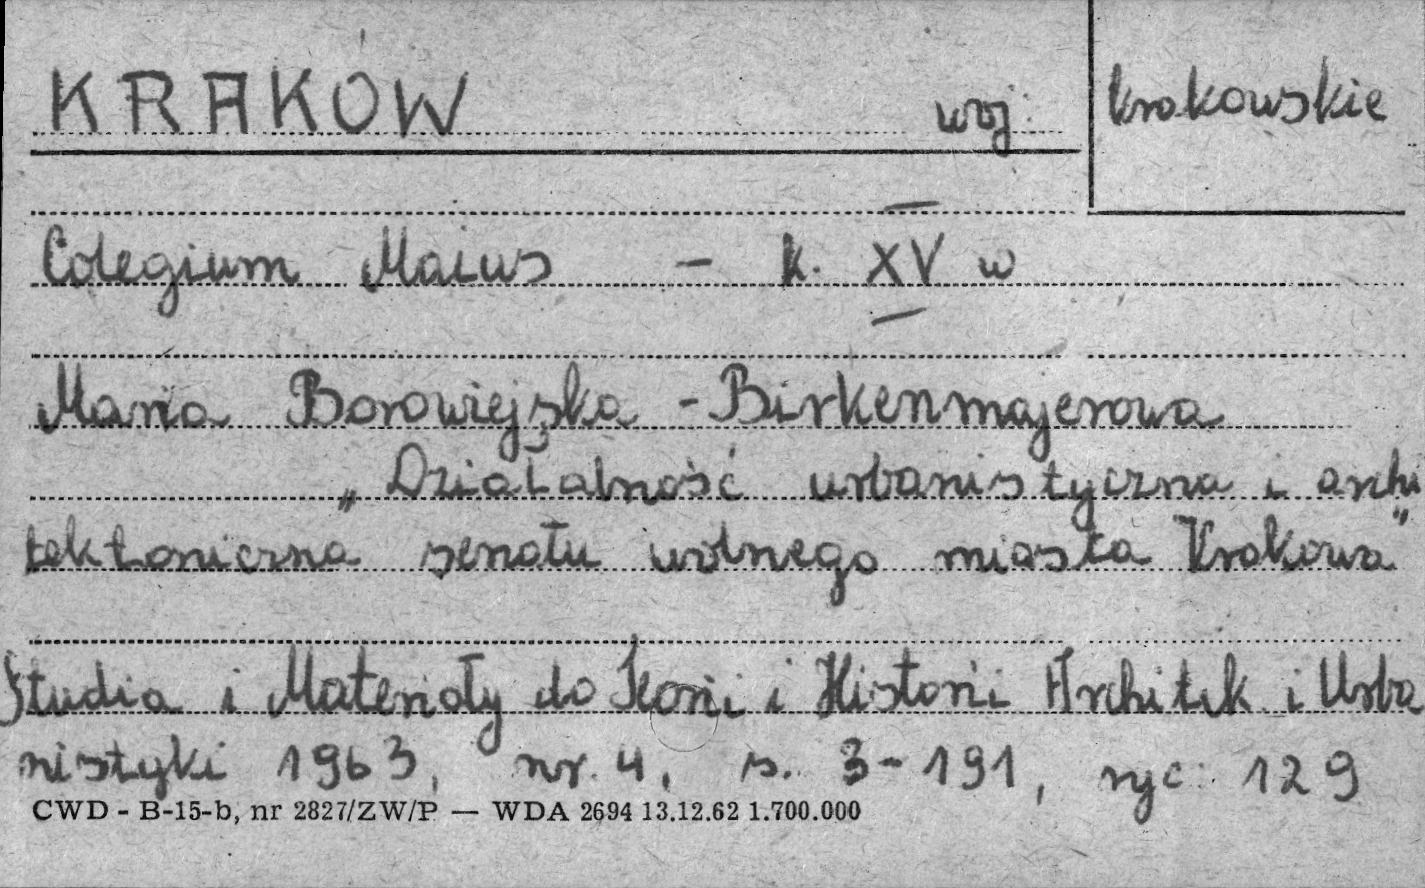 KRAKÓW woj. krakowskie
Colegium Maius - k. XV w
Maria Borowiejska - Birkenmajerowa
„Działalność urbanistyczna i archi
tektoniczna senatu wolnego miasta Krakowa"
Studia i Materiały do Teorii i Historii Architek. i Urba
nistyki 1963, nr. 4, s. 3-191, ryc. 129
CWD - B-15-b, nr 2827/ZW/P — WDA 2694 13.12.62 1.700.000